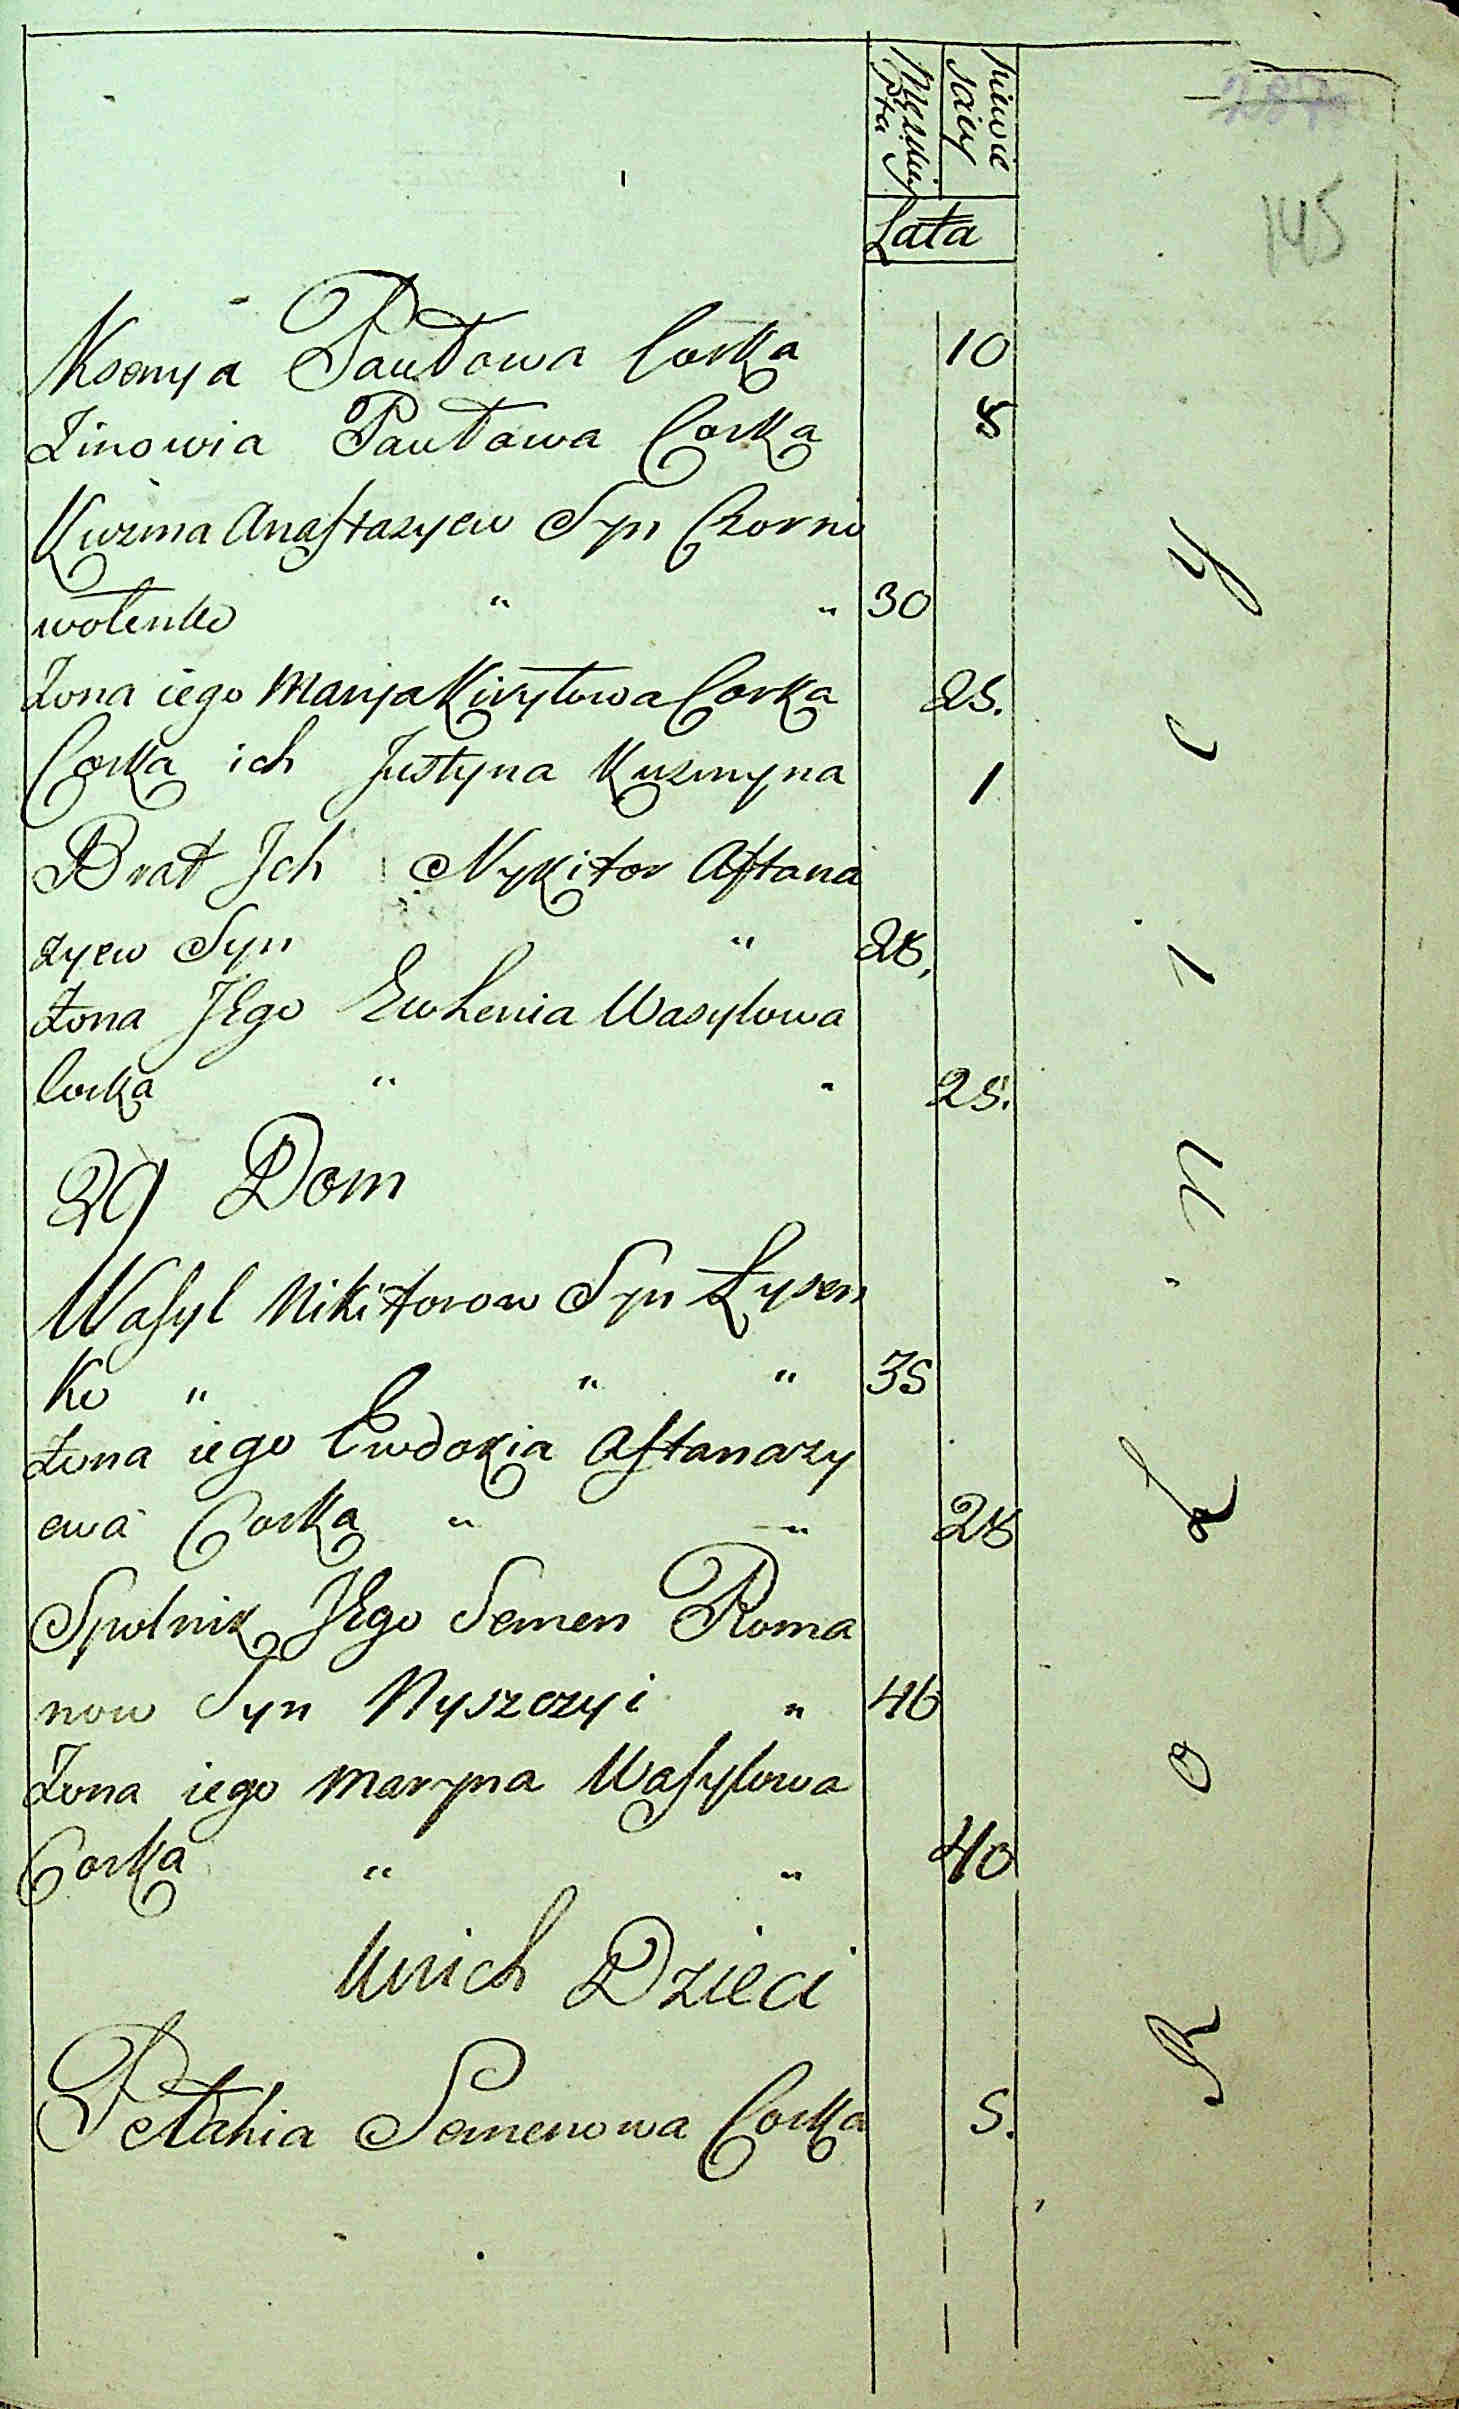 Męzkiey Płci
niewie
sciey
Lata
287
145
Ksenya Pawłowa Corka 10
Zinowia Pawłowa Corka 8
Kuzma Anastazyew Syn Czorno
wołenko " " 30
Zona iego Marya Kiryłowa Corka 25.
Corka ich Justyna Kuzmyna 1
Brat Ich Nykitor Aftana
zyew Syn " 28,
Zona JEgo Ewhenia Wasylowa
Corka " " 25.
29 Dom
Wasyl Nikitorow Syn Łysen
Ko " " " 35
Zona iego Ewdokia Aftanazy
ewa Corka " " 28
Spolnik JEgo Semen Roma
now Syn Nyszczyi " 46
Zona iego Maryna Wasylowa
Corka " " 40
Unich Dzieci
Petahia Semenowa Corka 5.
Rolnicy